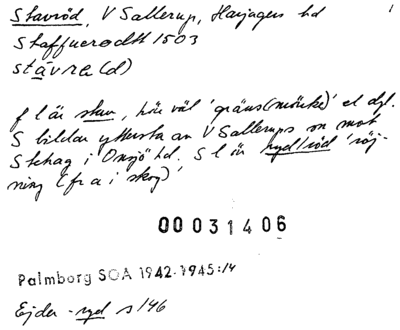 Stavröd, V Sallerup, Harjagers hd
Staffuerodth 1503
stävrɐ(d)
f l är stav, här väl 'gräns(märke)' el dyl.
S bildar yttersta av V Sallerups sn mot
Stehag i Onsjö hd. S l är ryd/röd 'röj-
ning (fr a i skog)'
00031406
Palmborg SOA 1942-1945:14
Ejder -ryd s 146